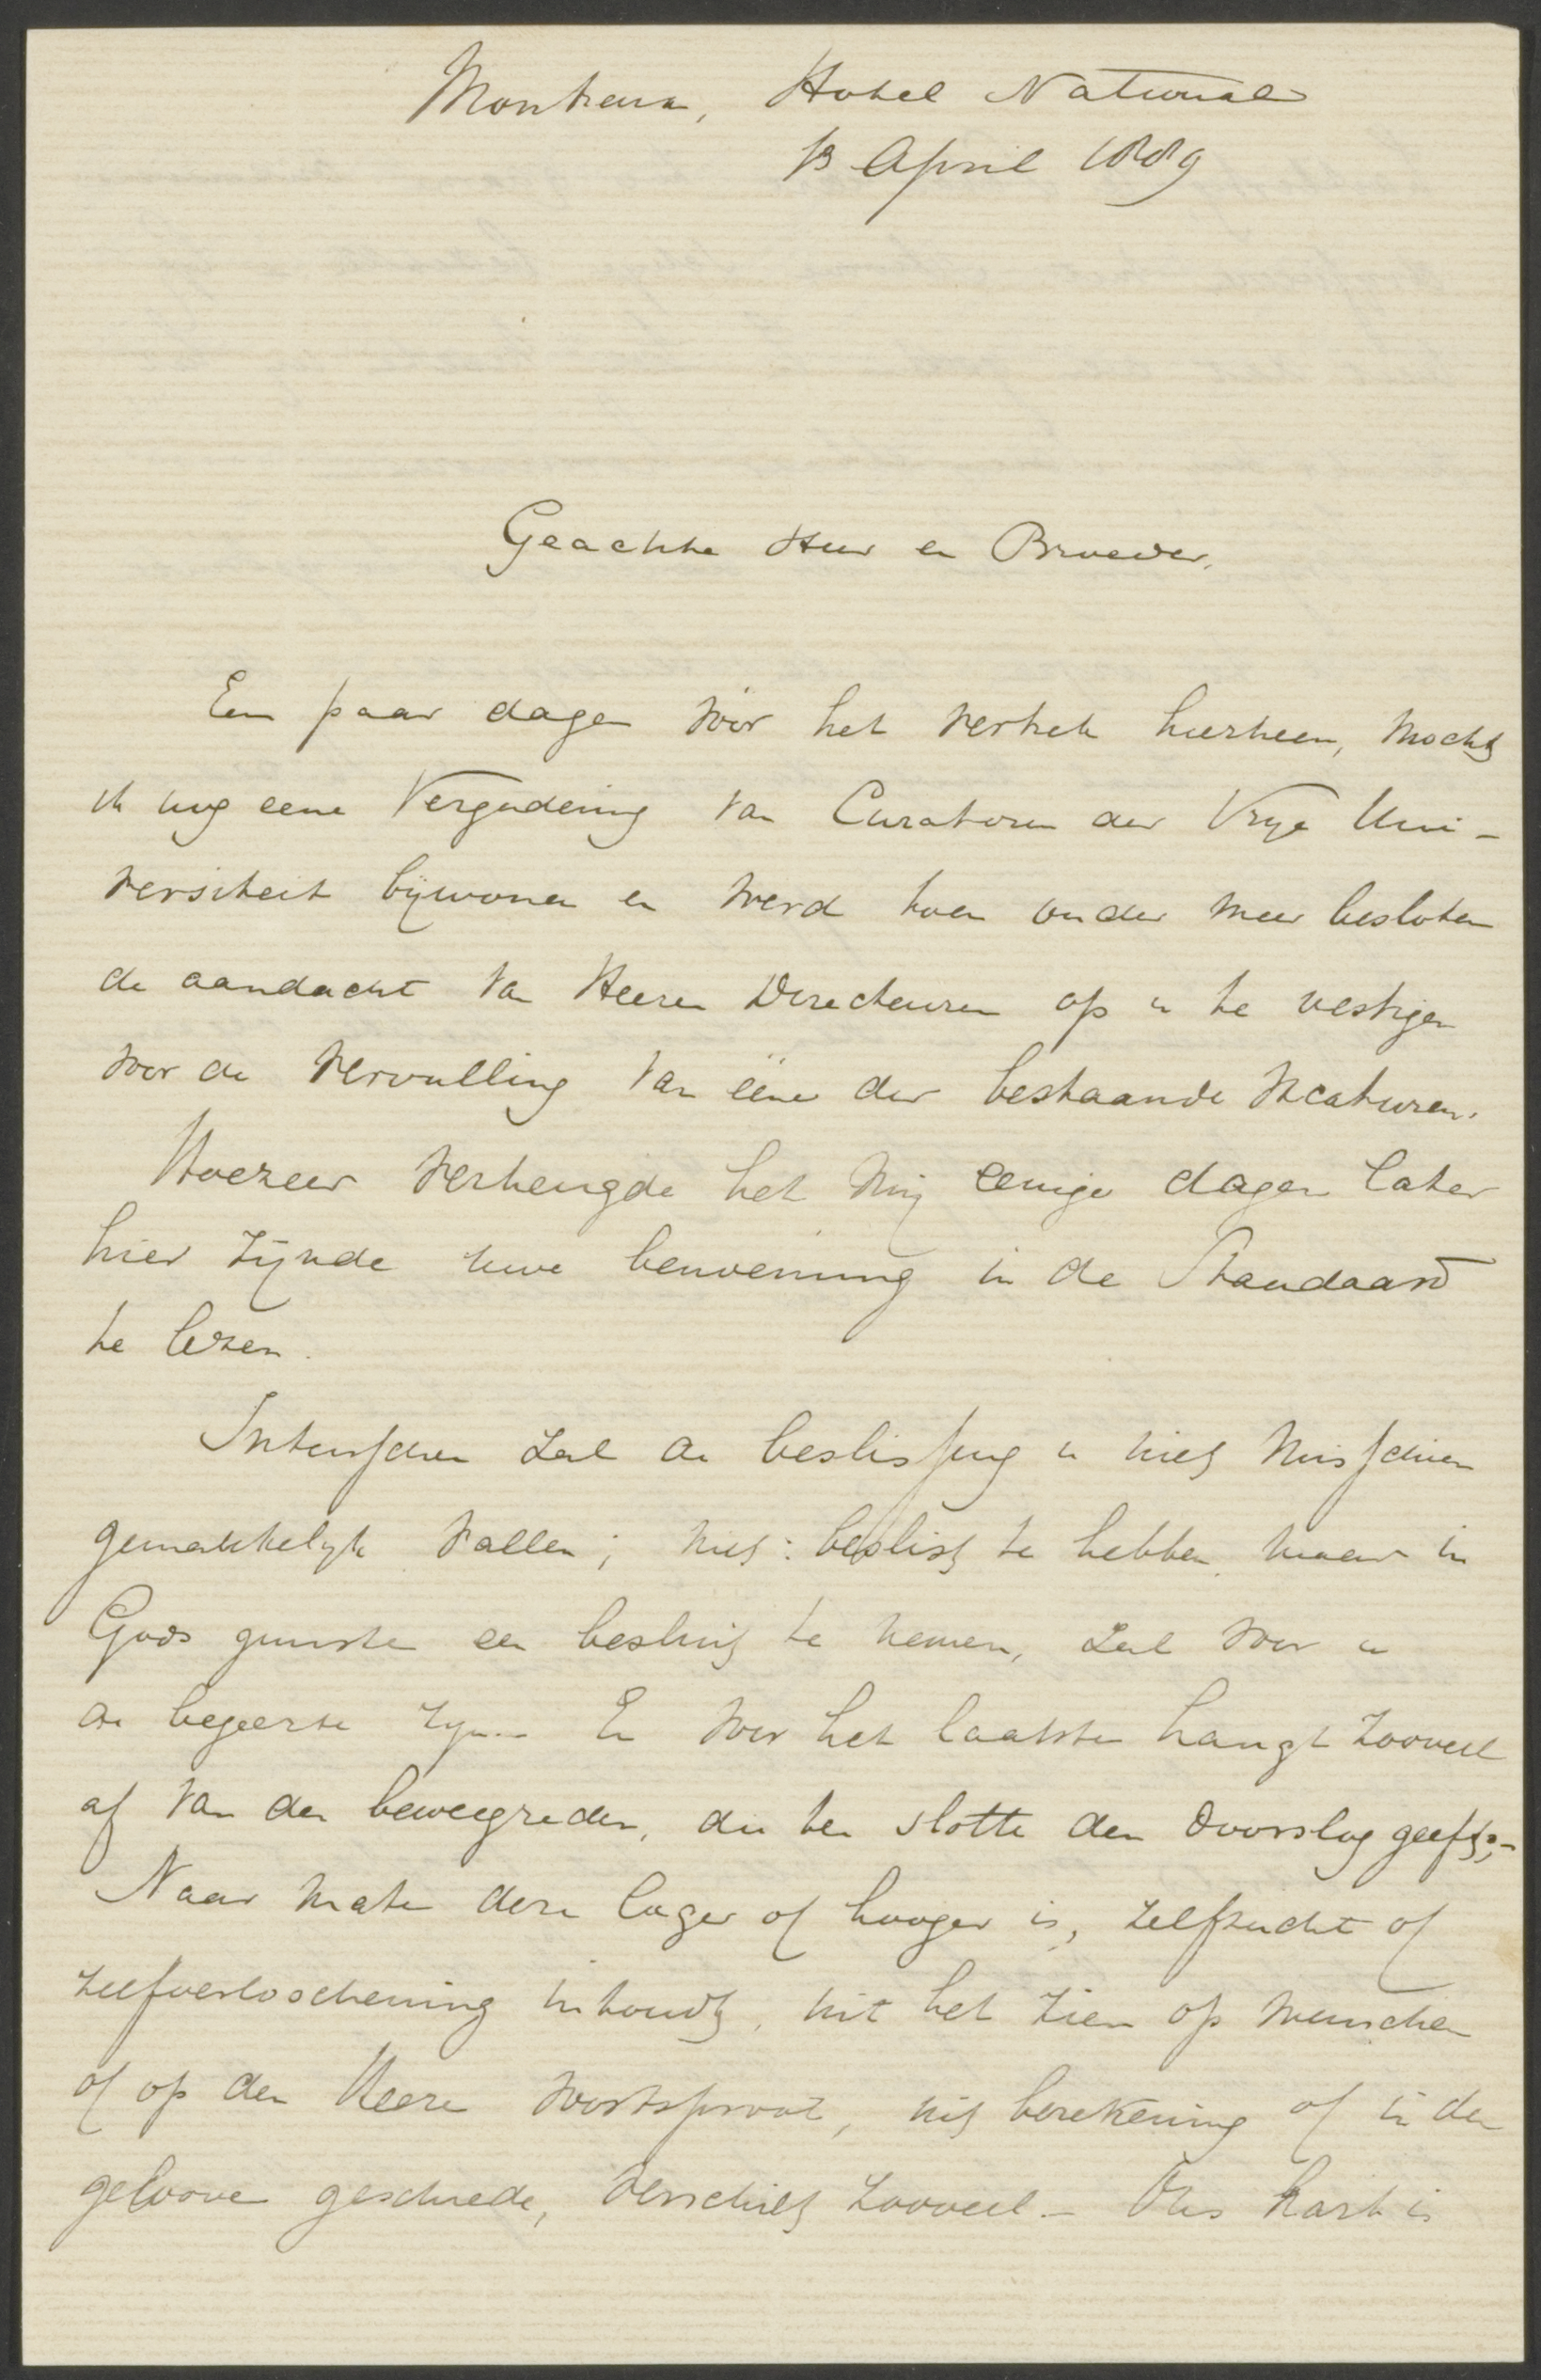 Montreux, Hotel National
13 April 1889
Geachte Heer en Broeder,
Een paar dagen vóór het vertrek hierheen, mocht
ik nog eene Vergadering van Curatoren der Vrije Uni-
versiteit bijwonen en werd toen onder meer besloten
de aandacht van Heeren Directeuren op u te vestigen
voor de vervulling van ééne der bestaande vacaturen.
Hoezeer verheugde het mij eenige dagen later
hier zijnde uwe benoeming in de Standaard
te lezen.
Intusschen zal de beslissing u niet misschien
gemakkelijk vallen; niet: beslist te hebben, maar in
Gods gunste een besluit te nemen, zal voor u
de begeerte zijn.- En voor het laatste hangt zooveel
af van den beweegreden, die ten slotte den doorslag geeft;-
Naar mate deze lager of hooger is, zelfzucht of
zelfverloochening inhoudt, uit het zien op menschen
of op den Heere voortsproot, uit berekening of in den
geloove geschiede, verschilt zooveel.- Ons hart is